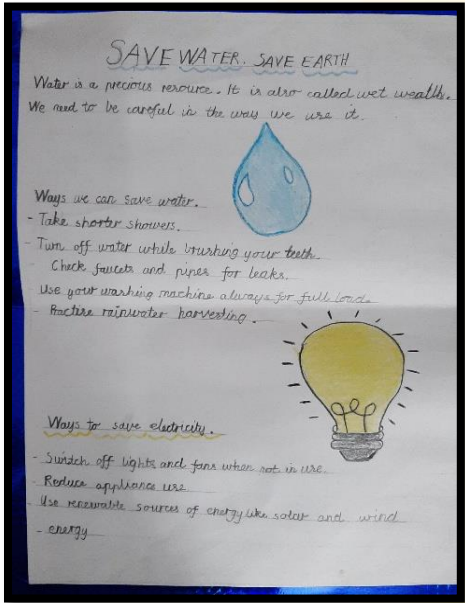 SAVE WATER. SAVE EARTH
Water is a precious resource. It is also called wet wealth.
We need to be careful in the ways we use it.
Ways we can save water.
- Take shorter showers.
- Turn off water while brushing your teeth.
Check faucets and pipes for leaks.
Use your washing machine always for full load.
- Practise rainwater harvesting.
Ways to save electricity.
- Switch off lights and fans when not in use.
- Reduce appliance use
- Use renewable sources of energy like solar and wind
- energy